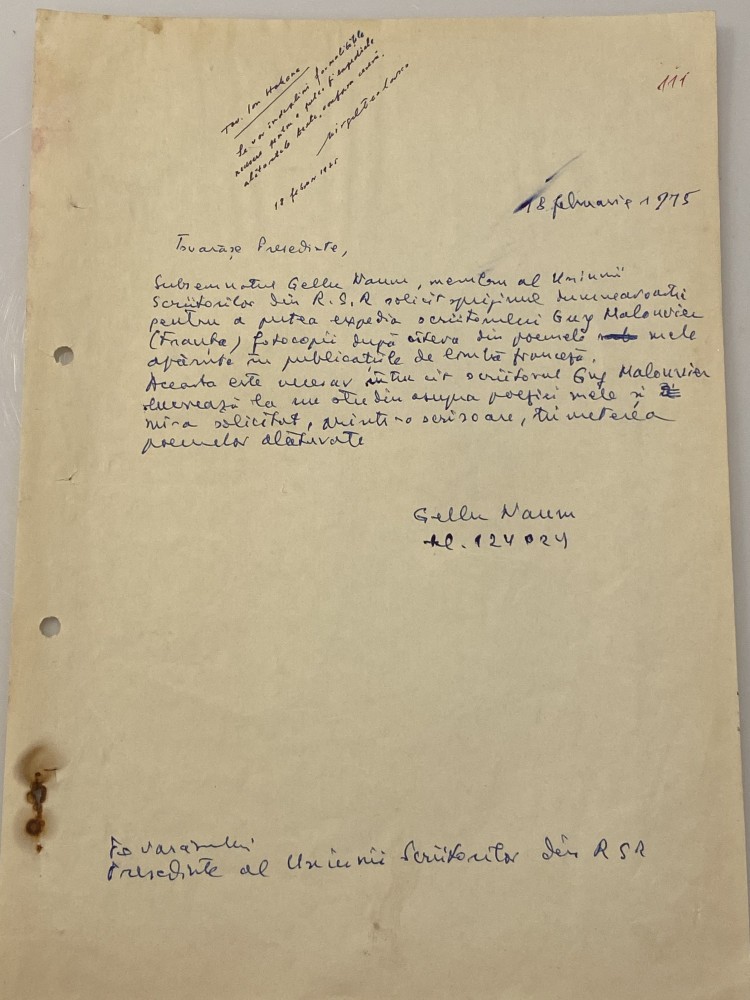 Tov. Ion Hobana
Se vor îndeplini formalitățile
necesare pentru a putea fi expediate
alăturatele texte, conform cererii.
18 febr 1975
111
18 februarie 1975
Tovarășe Președinte,
Subsemnatul Gellu Naum, membru al Uniunii
Scriitorilor din R.S.R solicit sprijinul dumneavoastră
pentru a putea expedia scriitorului Guy Malouvier
(Franța) fotocopii după cîteva din poemele mele
apărute în publicațiile de limbă franceză.
Aceasta este necesar întru cît scriitorul Guy Malouvier
lucrează la un studiu asupra poeziei mele și
mi-a solicitat, printr-o scrisoare, trimeterea
poemelor alăturate
Gellu Naum
tel. 124024
Tovarășului
Președinte al Uniunii Scriitorilor din RSR